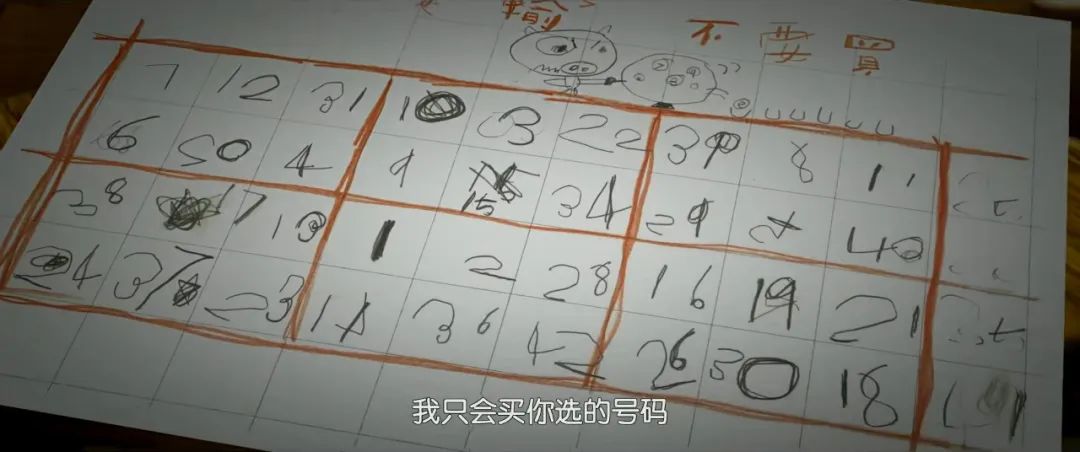 輸 不要買
7 12 31 10 3 22 39 8 11
6 50 4 9 15 34 29 40
38 1 2 28 16 19 21
24 37 23 36 42 26 30 18
我只会买你选的号码